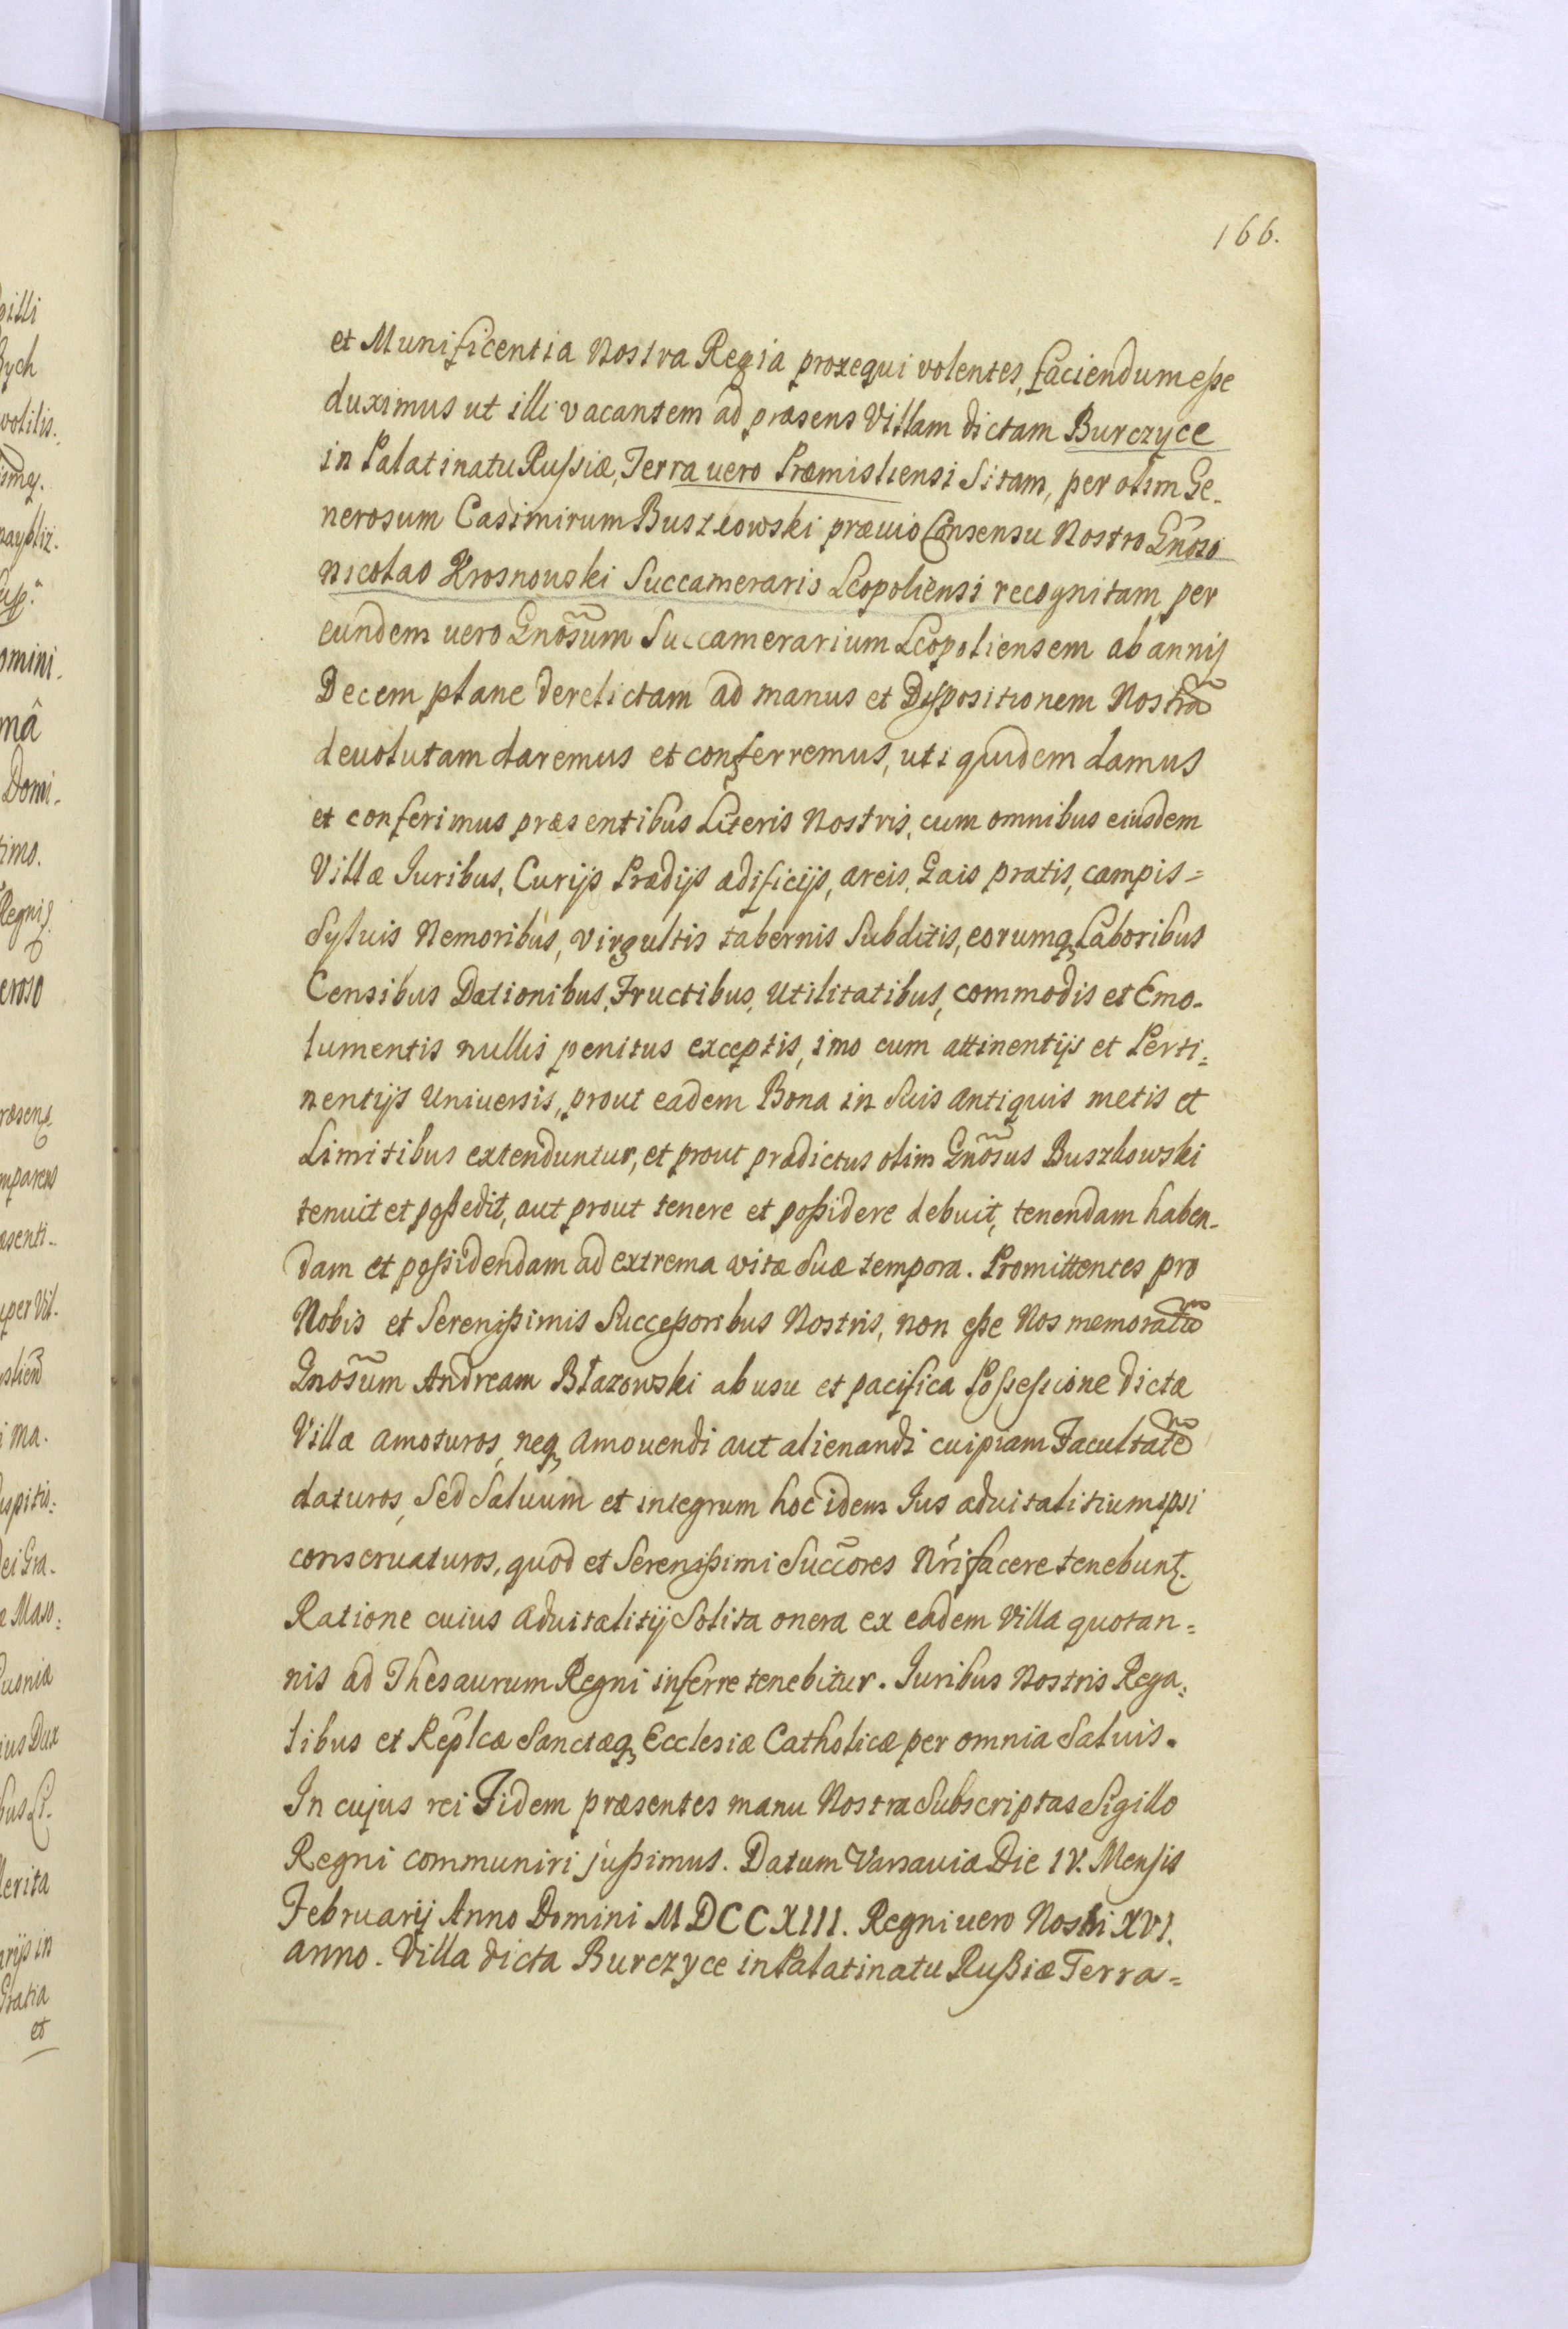 166.
et Munificentia Nostra Regia proxequi volentes, faciendum eße
duximus ut illi vacantem ad præsens Villam dictam Burczyce
in Palatinatu Rußiæ, Terra uero Præmisliensi Sitam, per olim Ge-
nerosum Casimirum Buszkowski præuio Consensu Nostro Gnoso
Nicolao Krosnowski Succameraris Leopoliensi recognitam per
eundem uero Gnosum Succamerarium Leopoliensem ab annis
Decem plane derelictam ad manus et Dispositionem Nostrã
deuolutam daremus et conferremus, uti quidem damus
et conferimus præsentibus Literis Nostris, cum omnibus eiusdem
Villæ Juribus, Curijs Prædijs ædificijs, areis, Gais pratis, campis=
Syluis Nemoribus, virgultis tabernis Subditis, eorumq, Laboribus
Censibus Dationibus, Fructibus, Utilitatibus, commodis et Emo-
lumentis nullis penitus exceptis, imo cum attinentijs et Perti=
nentijs Uniuersis, prout eadem Bona in Suis antiquis metis et
Limitibus extenduntur, et prout prædictus olim Gnosus Buszkowski
tenuit et poßedit, aut prout tenere et poßidere debuit, tenendam haben-
dam et poßidendam ad extrema vitæ Suæ tempora. Promittentes pro
Nobis et Serenißimis Succeßoribus Nostris, non eße Nos memoratũ
Gnosum Andream Błazowski ab usu et pacifica Poßeßione dictæ
Villæ amoturos, neq, amouendi aut alienandi cuipiam Facultatẽ
daturos, Sed Saluum et integrum hoc idem Jus aduitalitium ipsi
conseruaturos, quod et Serenißimi Succores Nri facere tenebunt.
Ratione cuius aduitalitij Solita onera ex eadem Villa quotan=
nis ad Thesaurum Regni inferre tenebitur. Juribus Nostris Rega=
libus et Replcæ Sanctæq, Ecclesiæ Catholicæ per omnia Saluis.
In cujus rei Fidem præsentes manu Nostra Subscriptas Sigillo
Regni communiri jußimus. Datum Varsauiæ Die IV. Mensis
Februarij Anno Domini MDCCXIII. Regni uero Nostri XVI.
anno. Villa dicta Burczyce in Palatinatu Rußiæ Terra=